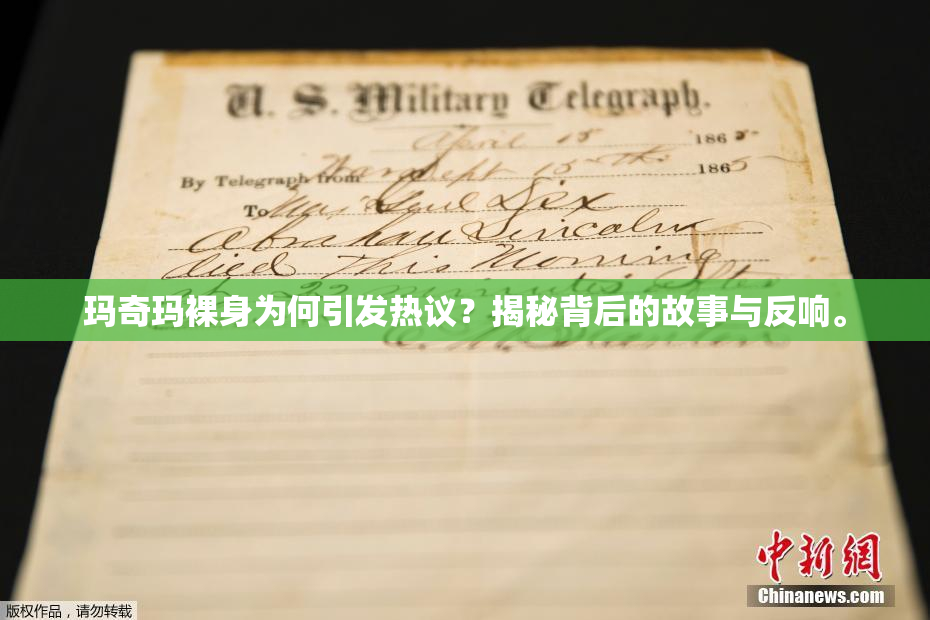 U. S. Military Telegraph.
April 15 1865
By Telegraph from War Dept 15th 1865
To Maj Genl Dix
Abraham Lincoln
died This Morning
22 minutes after
玛奇玛裸身为何引发热议？揭秘背后的故事与反响。
Stanton
中新网
Chinanews.com
版权作品，请勿转载